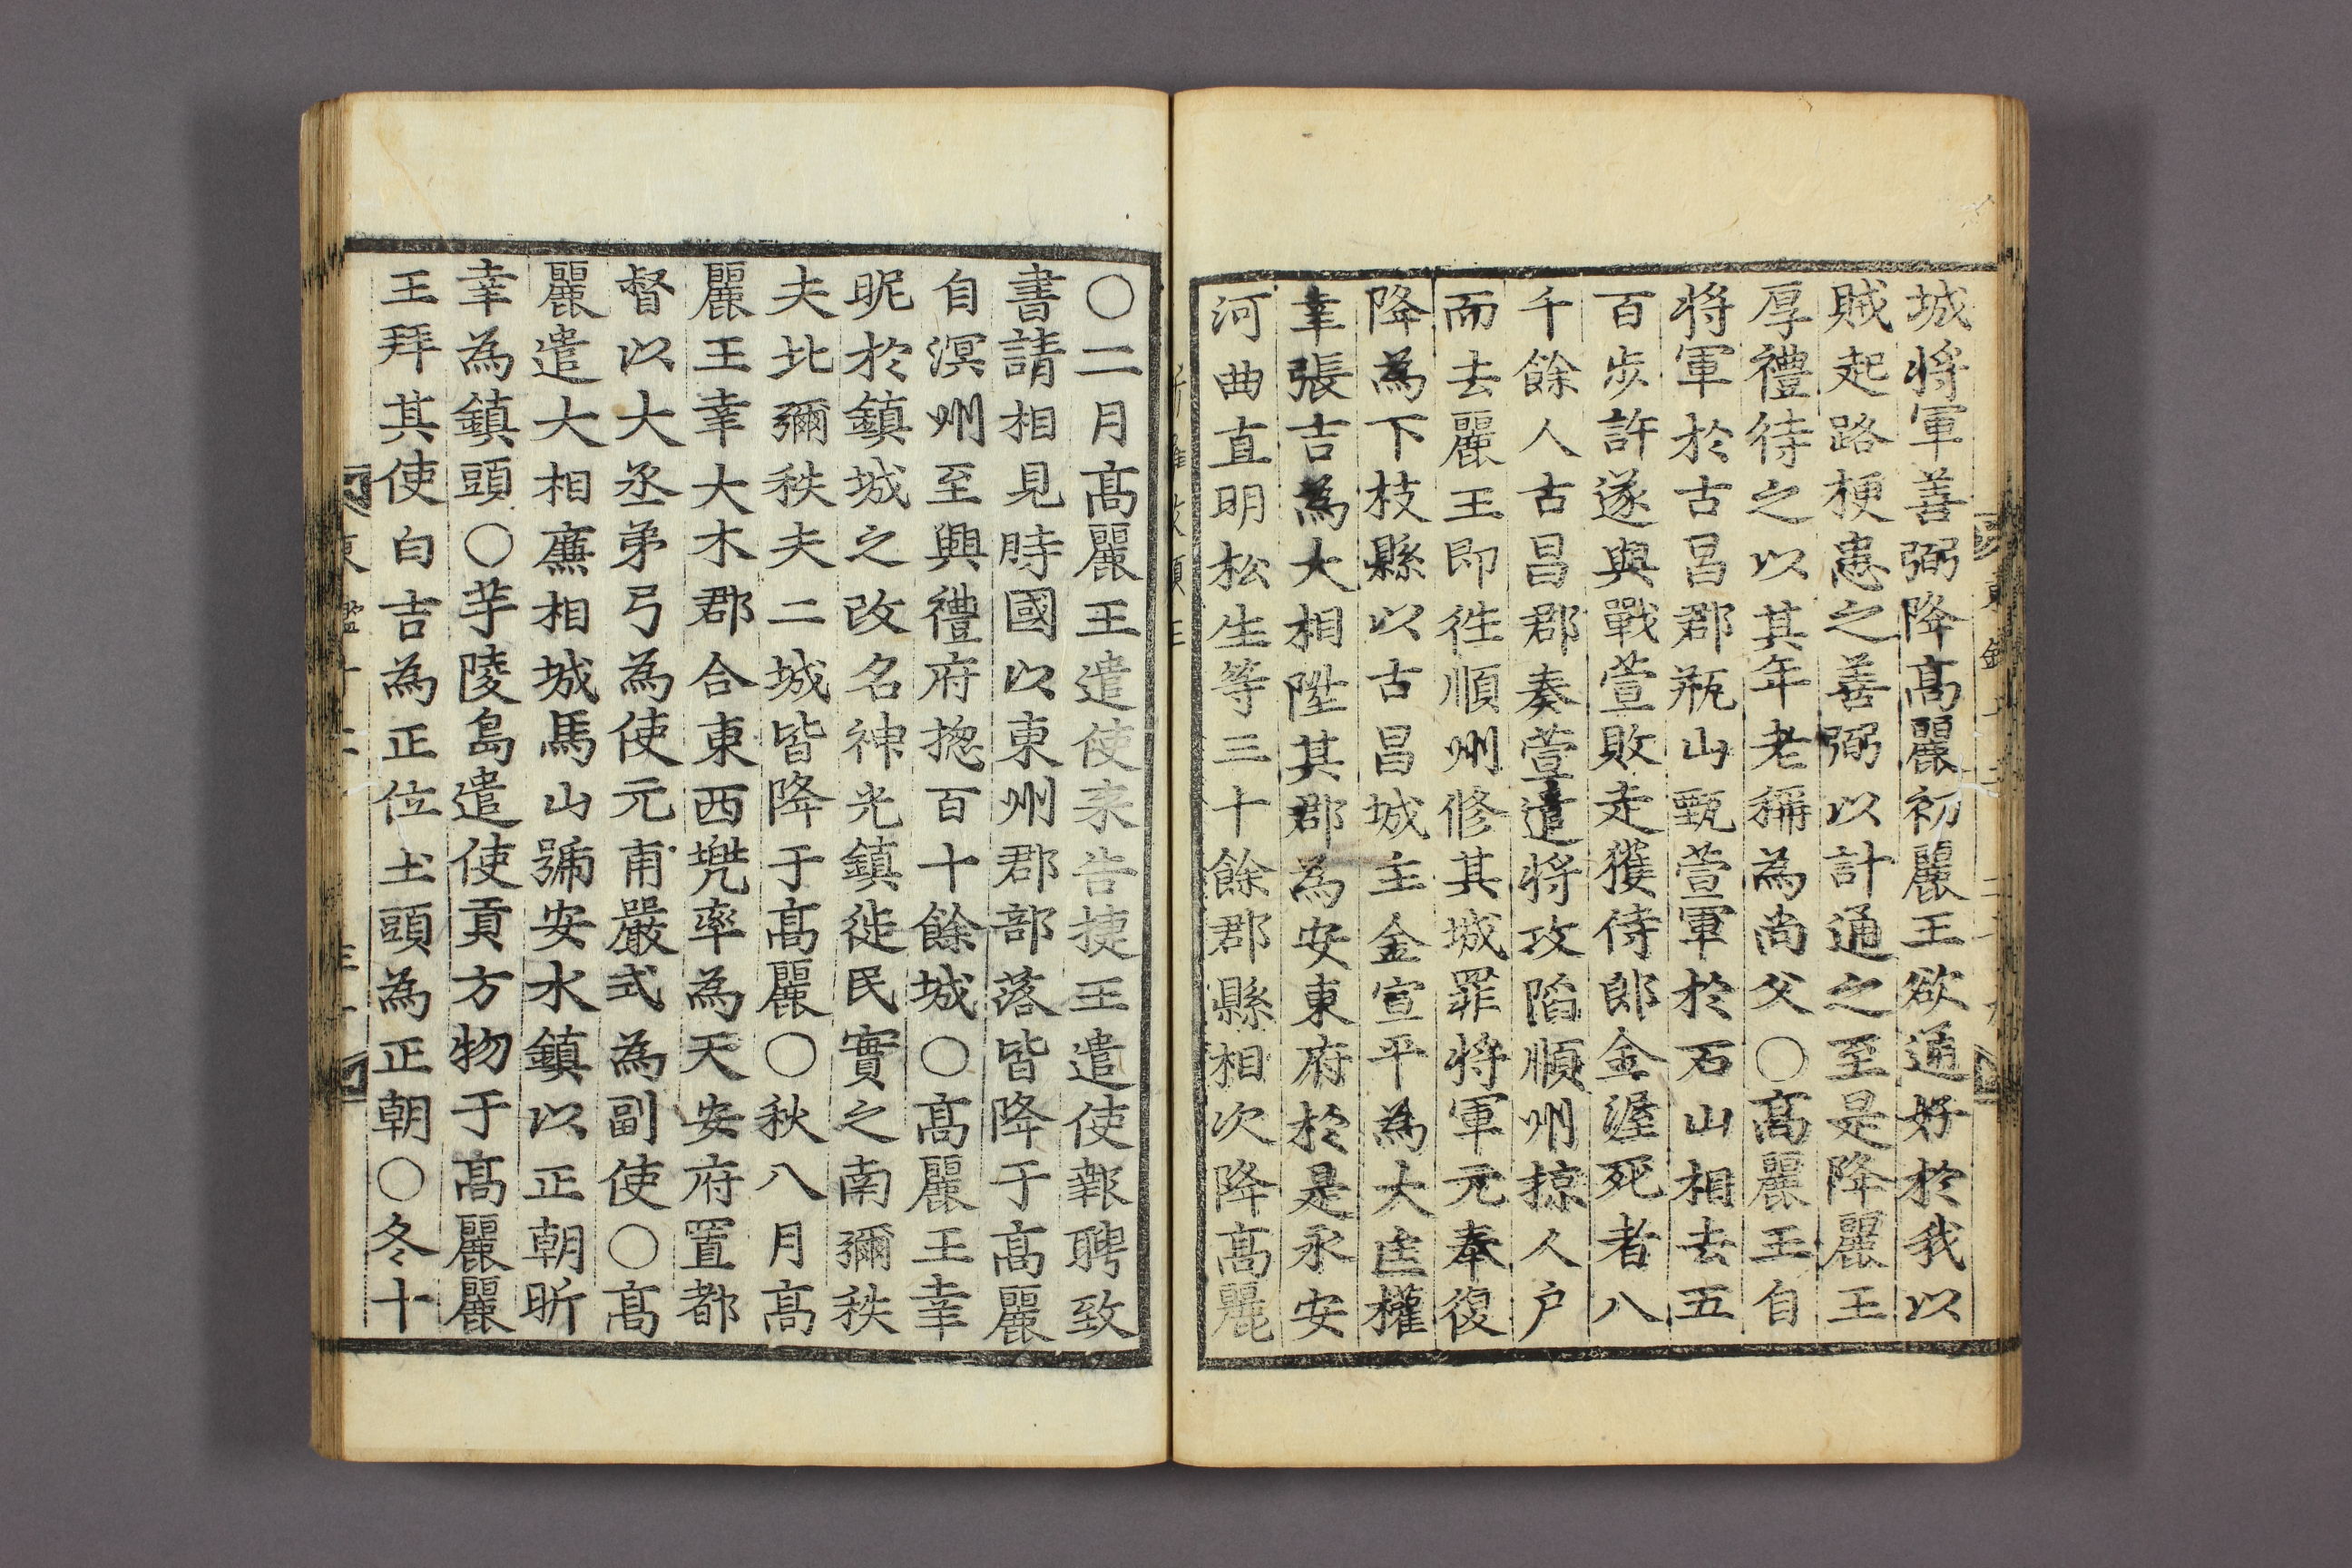 城将軍善弼降高麗初麗王欲通好於我以
賊起路梗患之善弼以計通之至是降麗王
厚禮待之以其年老稱為尚父○高麗王自
将軍於古昌郡瓶山甄萱軍於石山相去五
百步許遂與戰萱敗走獲侍郎金渥死者八
千餘人古昌郡奏萱遣将攻陷順州掠人户
而去麗王即徃順州修其城罪将軍元奉復
降為下枝縣以古昌城主金宣平為大匡權
幸張吉為大相陞其郡為安東府於是永安
河曲直明松生等三十餘郡縣相次降高麗
○二月高麗王遣使来告捷王遣使報聘致
書請相見時國以東州郡部落皆降于高麗
自溟州至興禮府摠百十餘城○高麗王幸
昵於鎮城之改名神光鎮徙民實之南彌秩
夫北彌秩夫二城皆降于高麗○秋八月高
麗王幸大木郡合東西兠率為天安府置都
督以大丞弟弓為使元甫嚴式為副使○高
麗遣大相廉相城馬山號安水鎮以正朝昕
幸為鎮頭○芋陵島遣使貢方物于高麗麗
王拜其使白吉為正位土頭為正朝○冬十